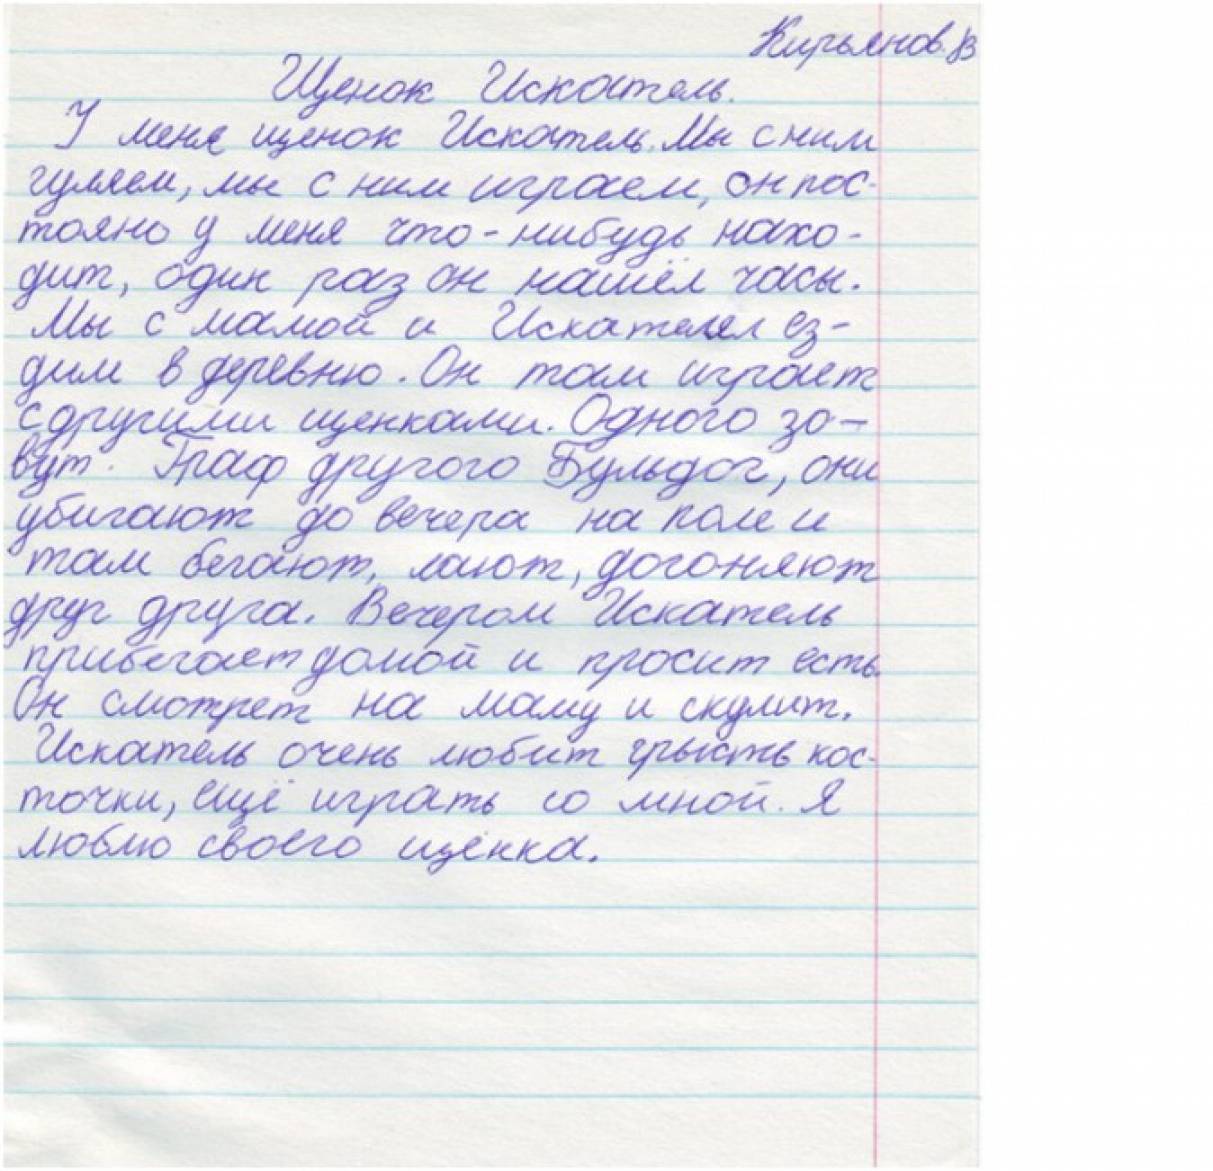 Кирьянов. В
Щенок Искатель.
У меня щенок Искатель. Мы с ним
гуляем, мы с ним играем, он пос-
тояно у меня что-нибудь нахо-
дит, один раз он нашёл часы.
Мы с мамой и Искателел ез-
дим в деревню. Он там играет
с другими щенками. Одного зо-
вут. Граф другого Бульдог, они
убигают до вечера на поле и
там бегают, лают, догоняют
друг друга. Вечером Искатель
прибегает домой и просит есть.
Он смотрет на маму и скулит.
Искатель очень любит грысть кос-
точки, ещё играть со мной. Я
люблю своего щенка.